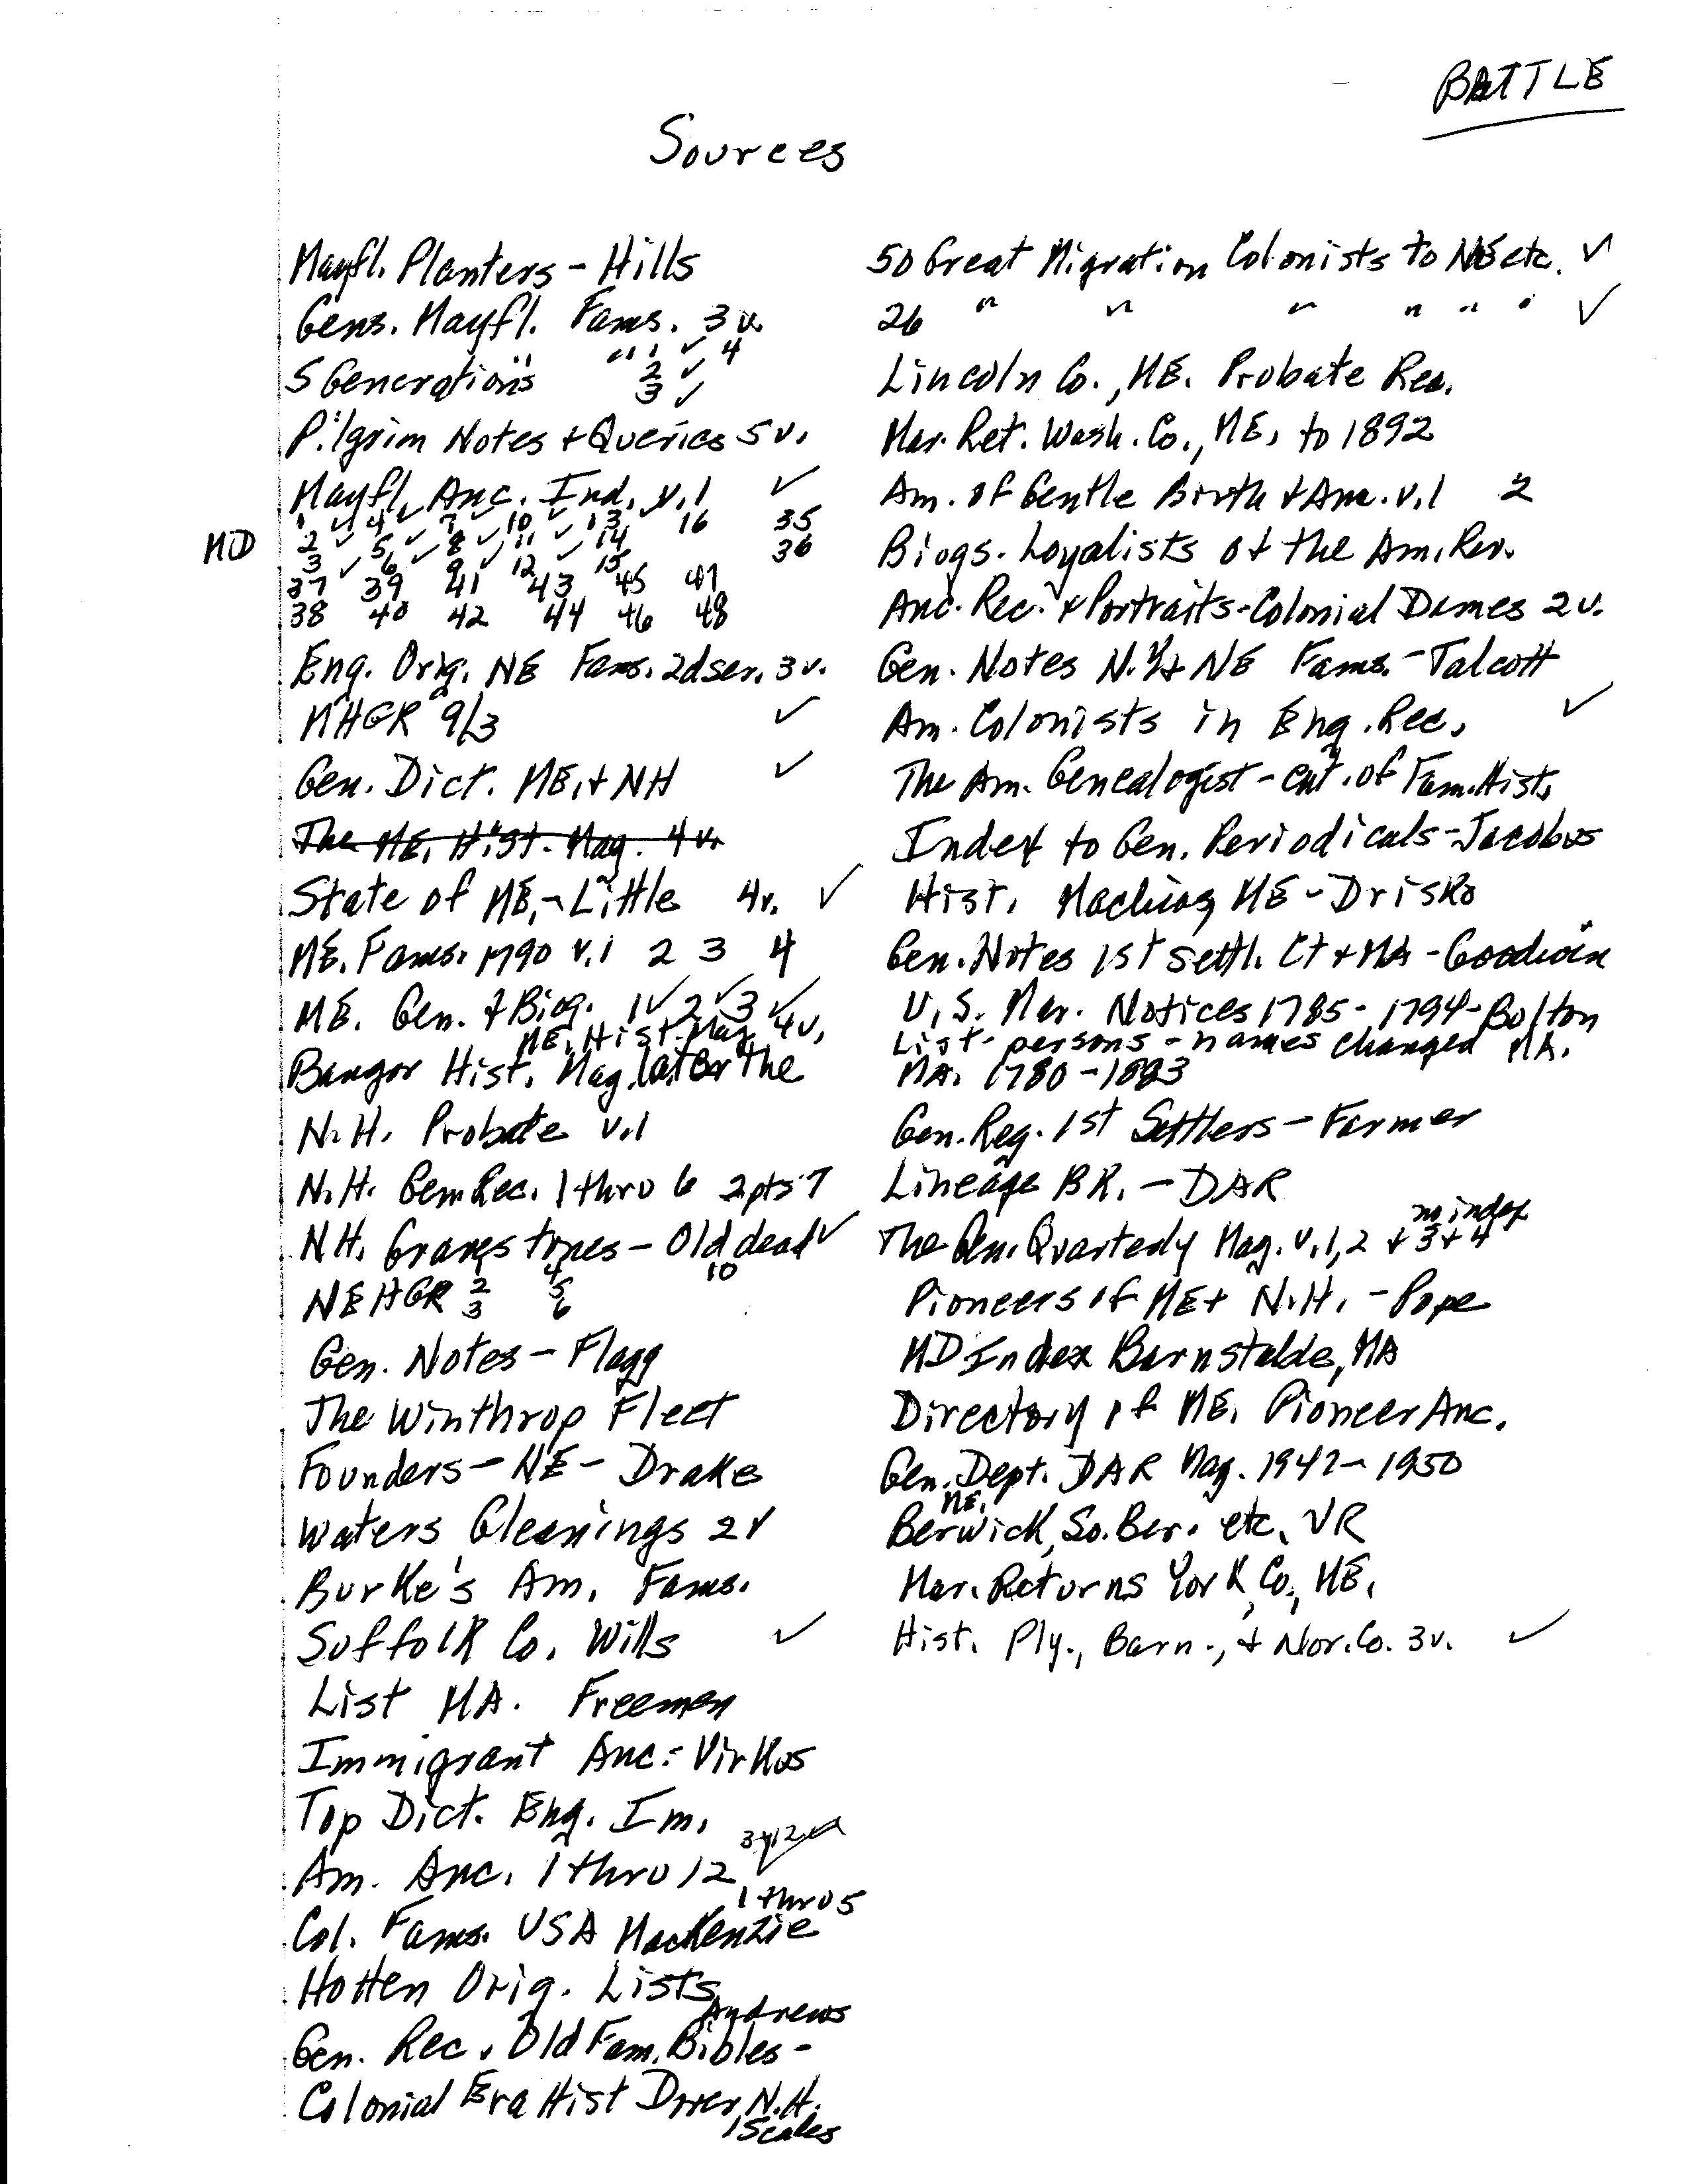 BATTLE
Sources
Mayfl. Planters - Hills
Gens. Mayfl. Fams. 3 v.
5 Generations " " 1 ✓ 4
2 ✓
3 ✓
Pilgrim Notes + Queries 5 v.
Mayfl. Anc. Ind. v.1 ✓
MD
1 ✓ 4 ✓ 7 ✓ 10 ✓ 13 16 35
2 ✓ 5 ✓ 8 ✓ 11 ✓ 14 36
3 ✓ 6 ✓ 9 ✓ 12 ✓ 15
37 39 41 43 45 47
38 40 42 44 46 48
Eng. Orig. NE Fams. 2d ser. 3 v.
MHGR 9/3 ✓
Gen. Dict. ME. + NH ✓
The ME. Hist. Mag. 4 v.
State of ME. - Little 4v. ✓
ME. Fams. 1790 v.1 2 3 4
ME. Gen. + Biog. 1 ✓ 2 ✓ 3 ✓
ME. Hist. Mag. 4v.
Bangor Hist. Mag. later the
N.H. Probate v.1
N.H. Gen. Rec. 1 thro 6 2 pts 7
N.H. Gravestones - Old dead ✓
10
NEHGR 2 4
3 5
6
Gen. Notes - Flagg
The Winthrop Fleet
Founders - NE - Drake
Waters Gleanings 2 v
Burke's Am. Fams.
Suffolk Co. Wills ✓
List MA. Freemen
Immigrant Anc. - Virkus
Top Dict. Eng. Im.
Am. Anc. 1 thro 12 ✓
1 thro 5
Col. Fams. USA MacKenzie
Hotten Orig. Lists
Andrews
Gen. Rec. Old Fam. Bibles -
Colonial Era Hist Dover, N.H.
Scales
50 Great Migration Colonists to NE etc. ✓
26 " " " " " " ✓
Lincoln Co., ME. Probate Rec.
Mar. Ret. Wash. Co., ME. to 1892
Am. of Gentle Birth + Anc. v.1 2
Biogs. Loyalists of the Am. Rev.
Anc. Rec. + Portraits - Colonial Dames 2 v.
Gen. Notes N.Y. + NE Fams. - Talcott
Am. Colonists in Eng. Rec. ✓
The Am. Genealogist - cat. of Fam. Hist.
Index to Gen. Periodicals - Jacobus
Hist. Machias, ME - Drisko
Gen. Notes 1st settl. Ct + MA - Goodwin
U.S. Mar. Notices 1785 - 1794 - Bolton
List - persons - names changed MA.
MA. 1780 - 1883
Gen. Reg. 1st Settlers - Farmer
Lineage BK. - DAR
no index
The Gen. Quarterly Mag. v.1, 2 + 3 + 4
Pioneers of ME + N.H. - Pope
MD Index Barnstable, MA
Directory of ME. Pioneer Anc.
Gen. Dept. DAR Mag. 1947 - 1950
ME.
Berwick, So. Ber. etc. VR
Mar. Returns York Co., ME.
Hist. Ply., Barn., + Nor. Co. 3v. ✓